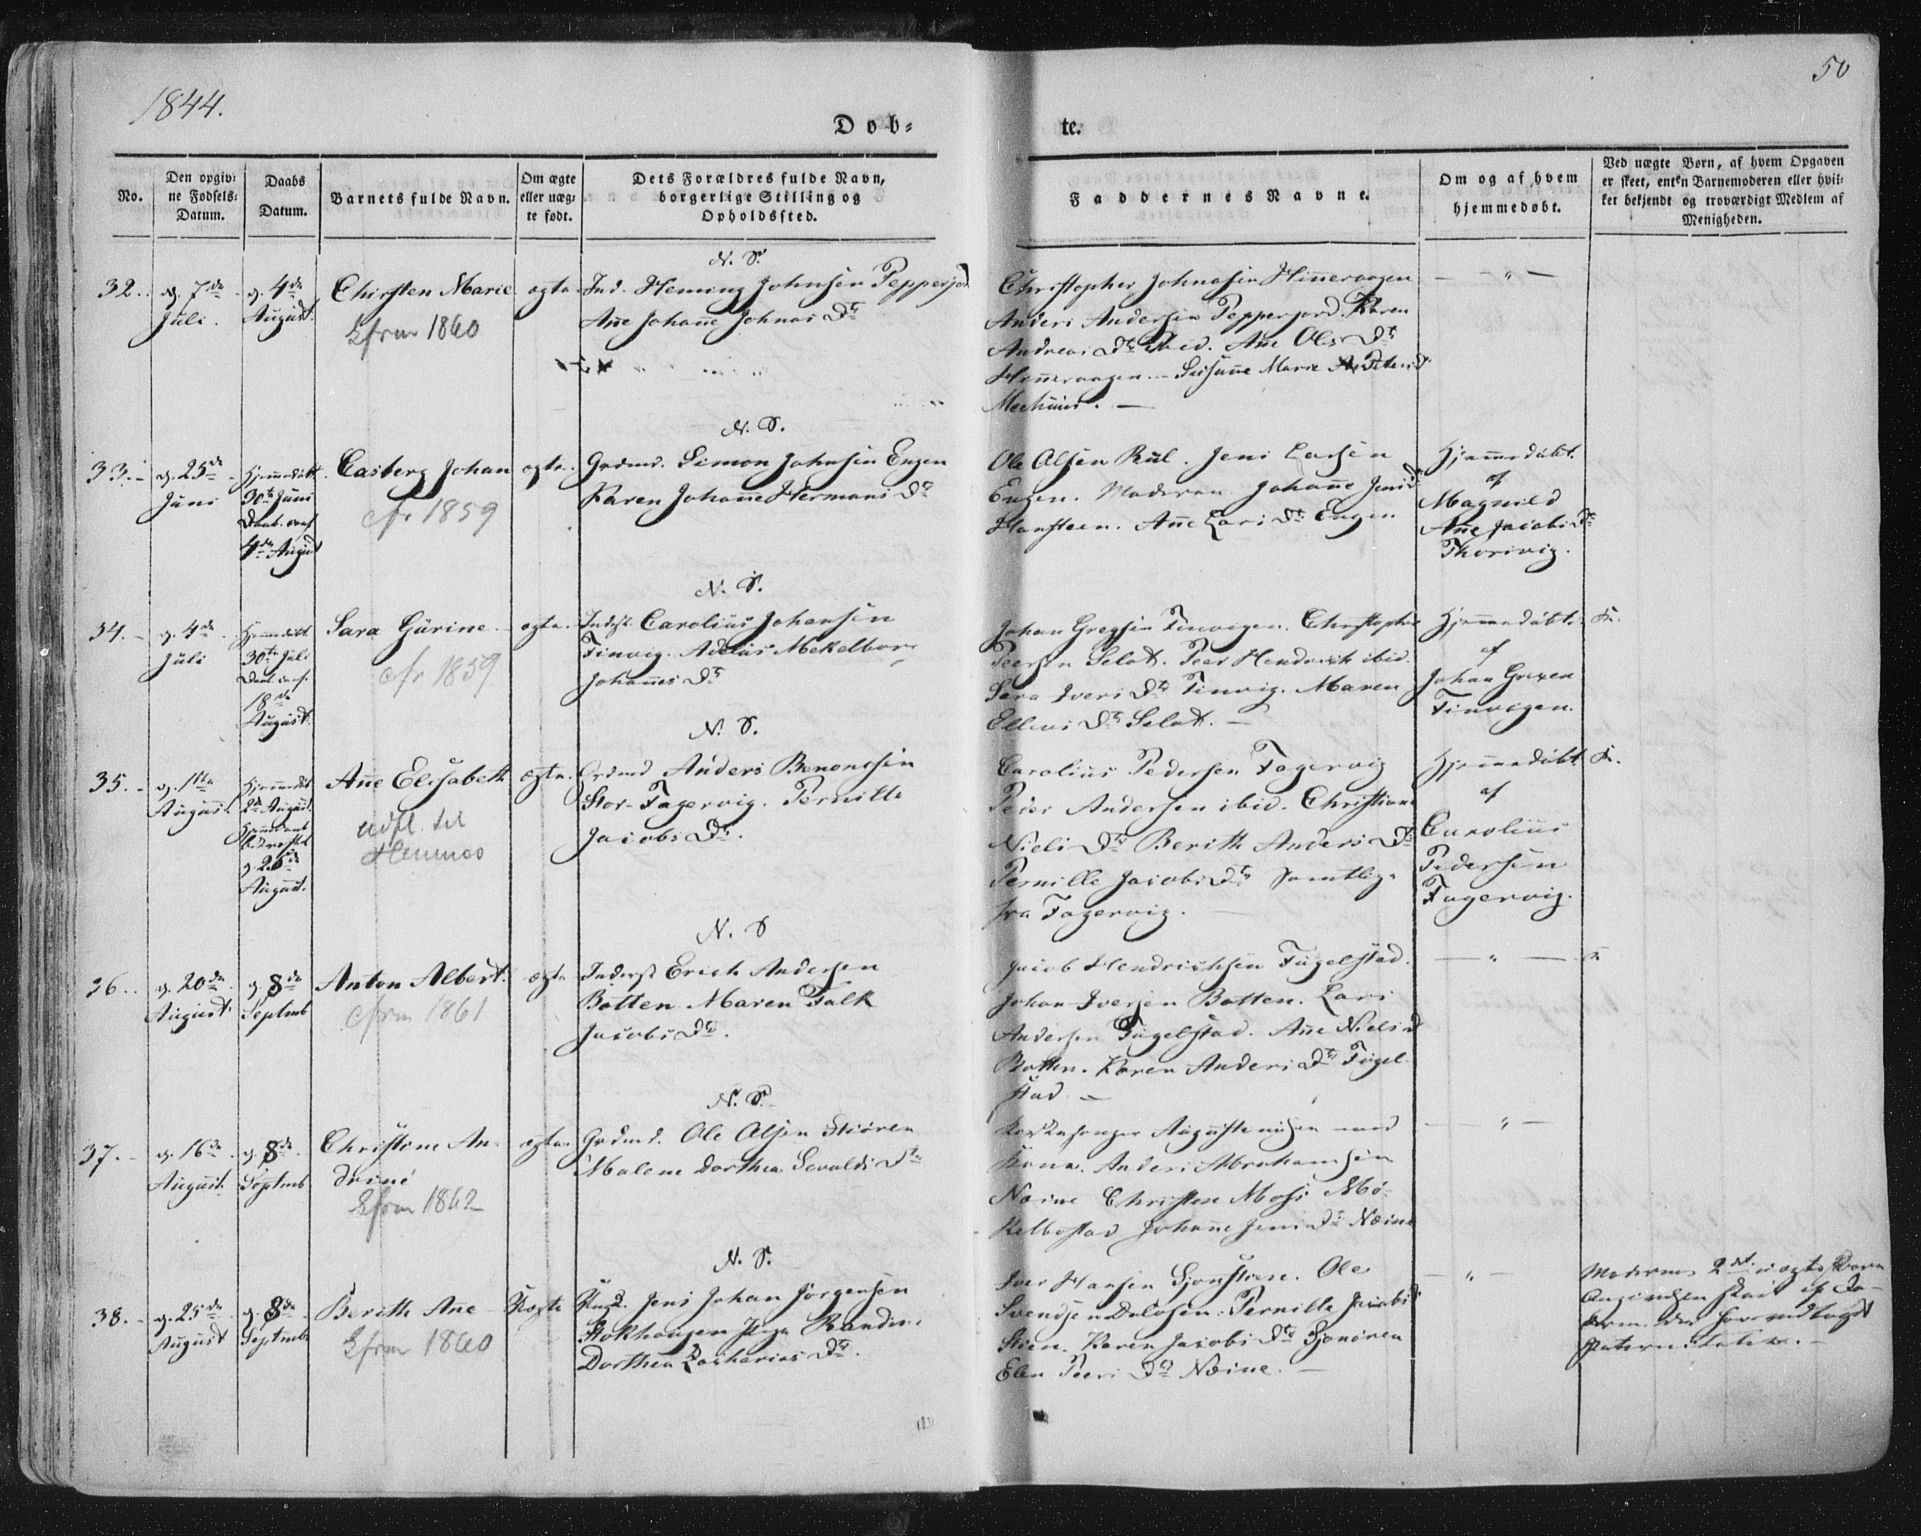 1844.
50
Døb-
te.
No.
Den opgiv-
ne Fødsels-
Datum.
Daabs
Datum.
Barnets fulde Navn.
Om ægte
eller uæg-
te født.
Dets Forældres fulde Navn,
borgerlige Stilling og
Opholdssted.
Faddernes Navne.
Om og af hvem
hjemmedøbt.
Ved uægte Børn, af hvem Opgaven
er skeet, enten Barnemoderen eller hvil-
ket bekjendt og troværdigt Medlem af
Menigheden.
N. S.
32. d. 7de Juli.
d. 4de August.
Chirsten Marie
Kfrm 1860
ægte
Ind. Heming Johnsen Pepperjord
Ane Johane Johnas Dtr
Christopher Johnasen Hinnevaagen
Anders Andersen Pepperjord. Karen
Andreas Dtr ibid. Ane Ols Dtr
Hinnevaagen. Susane Marie
N. S.
33. d. 25de Juni
Hjemmedøbt
30te Juni
Daab. conf.
4de August
Casberg Johan
cfr 1859
ægte.
Grdmd. Simon Johnsen Engen
Karen Johane Hermans Dtr
Ole Olsen Rül. Jens Larsen
Engen. Moderen Johane Jens
Hansteen. Ane Lars Dtr Engen
Hjemmedøbt.
af
Magnild
Ane Jacobs Dtr
Thorsvig.
N. S.
34. d. 4de Juli
Hjemmedøbt
30te Juli
Daab. conf.
18de
August.
Sara Gurine.
cfr 1859
ægte.
Inderst. Carolius Johansen
Finvig. Mekelborg
Johannes Dtr
Johan Gregsen Finvigen. Christopher
Peersen Selat. Peer Hendrich ibid.
Sara Ivers Dtr Finvig. Maren
Ellevs Dtr Selat.
Hjemmedøbt.
af
Johan Grexen
Finvigen.
N. S.
35. d. 1ste August.
Hjemmedøbt
2de August.
d. 26de
August.
Ane Elisabeth
udfl. til
Hemnes
ægte.
Grdmd Anders Benonssen
Stor-Fagervig. Pernille
Jacobs Dtr.
Carolius Pedersen Fagervig
Peder Andersen ibid. Christiane
Niels Dtr Berith Anders Dtr
Pernille Jacobs Dtr Samtlige
fra Fagervig.
Hjemmedøbt.
af
Carolius
Pedersen
Fagervig.
N. S
36. d. 20de August.
d. 8de Septmb
Anton Albert.
cfrm 1861
ægte
Inderst Erich Andersen
Botten Maren Falk
Jacobs Dtr.
Jacob Hendrichsen Fugelstad.
Johan Iversen Botten. Lars
Andersen Fugelstad. Ane Niels
Botten. Karen Anders Dtr Fugel-
stad.
N. S.
37. d. 16de August.
d. 8de Septmb
Christine An-
drine
Kfrm 1862
ægte.
Grdmd. Ole Olsen Skiøren
Malene Dorthea Sevalds Dtr
Kirkesanger Augustenisen med
Kone. Anders Abrahamsen
Neine Christen Mosi Mø-
kelbostad Johane Jens Dtr Neine
N. S.
38. d. 25de August
d. 8de Septmb
Berith Ane
Kfrm 1860
Uægte
Jens Johan Jørgensen
Stokhaugen Randine
Dorthea Zacharias Dtr.
Iver Hansen Sjonstrøm. Ole
Svendsen Dalosen. Pernille Jacobs
Stien. Karen Jacobs Dtr Sjonøren
Elen Peers Dtr Neine.
Moderens 2det uægte Barn